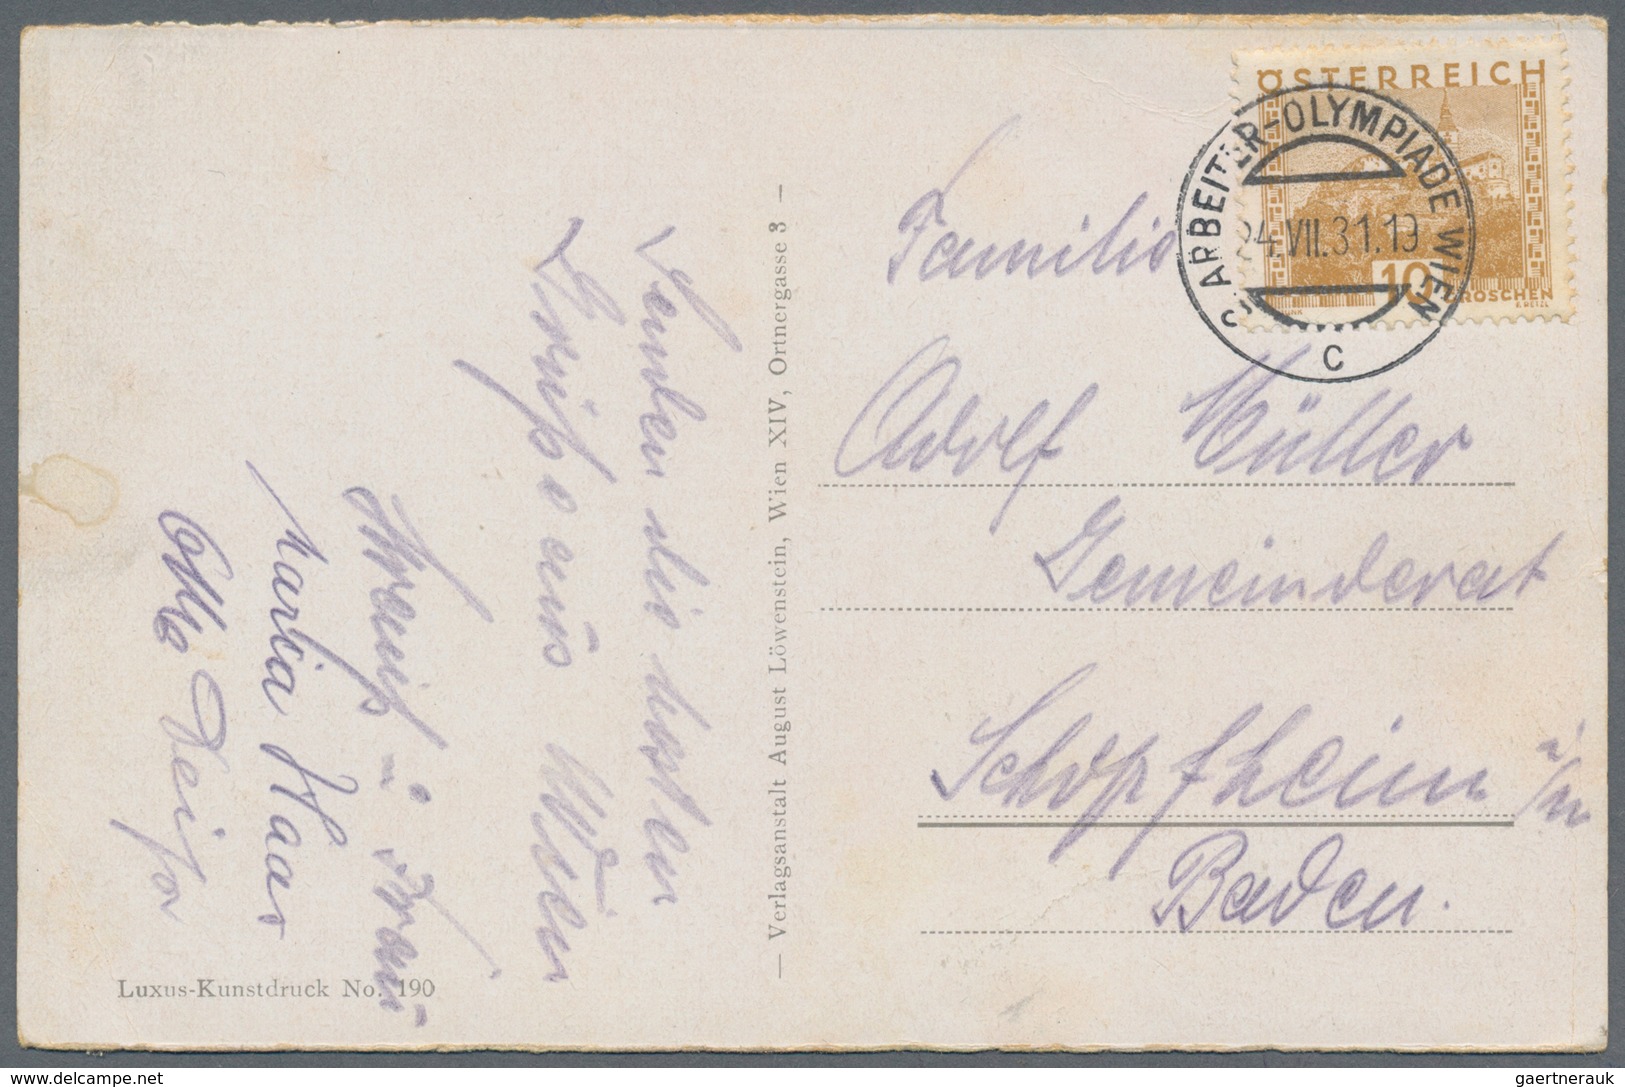 ÖSTERREICH
ARBEITER-OLYMPIADE WIEN
24.VII.31.19
10 GROSCHEN
C
Familie
Adolf Müller
Gemeinderat
Schopfheim i/m
Baden.
— Verlagsanstalt August Löwenstein, Wien XIV, Ortnergasse 3 —
Senden die besten
Grüße aus Wien
i. Frau
Maria Haas
Luxus-Kunstdruck No. 190
delcampe.net
gaertnerauk